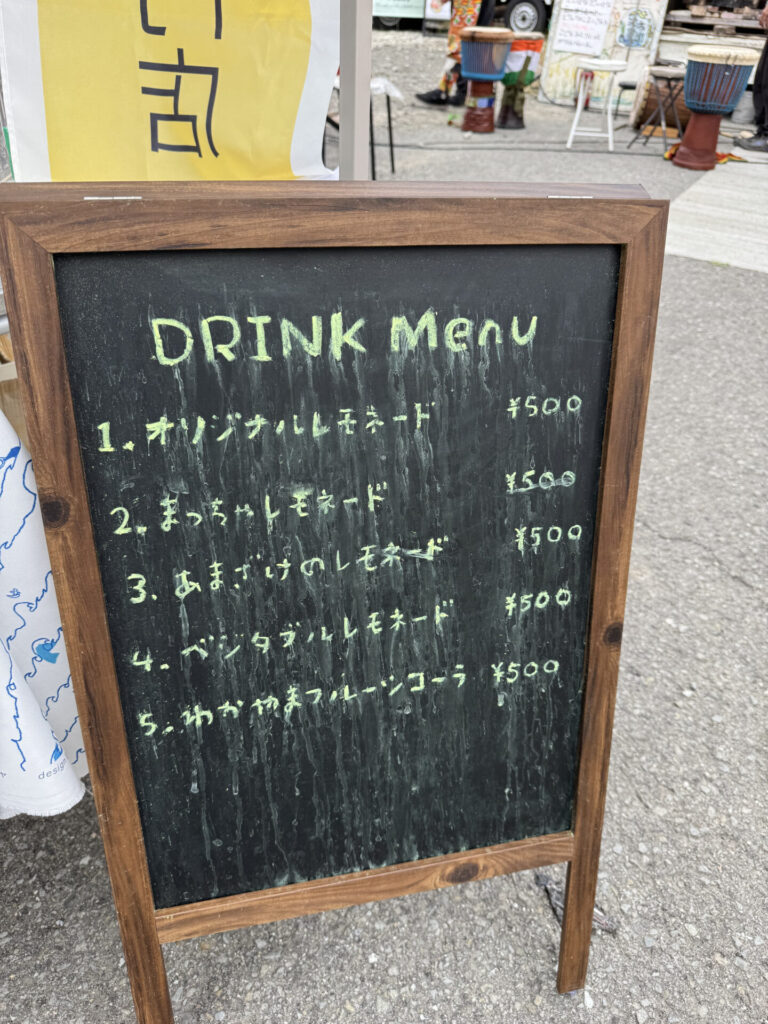 DRINK Menu
1. オリジナルレモネード ¥500
2. まっちゃレモネード ¥500
3. あまざけのレモネード ¥500
4. ベジタブルレモネード ¥500
5. わかやまフルーツコーラ ¥500
design